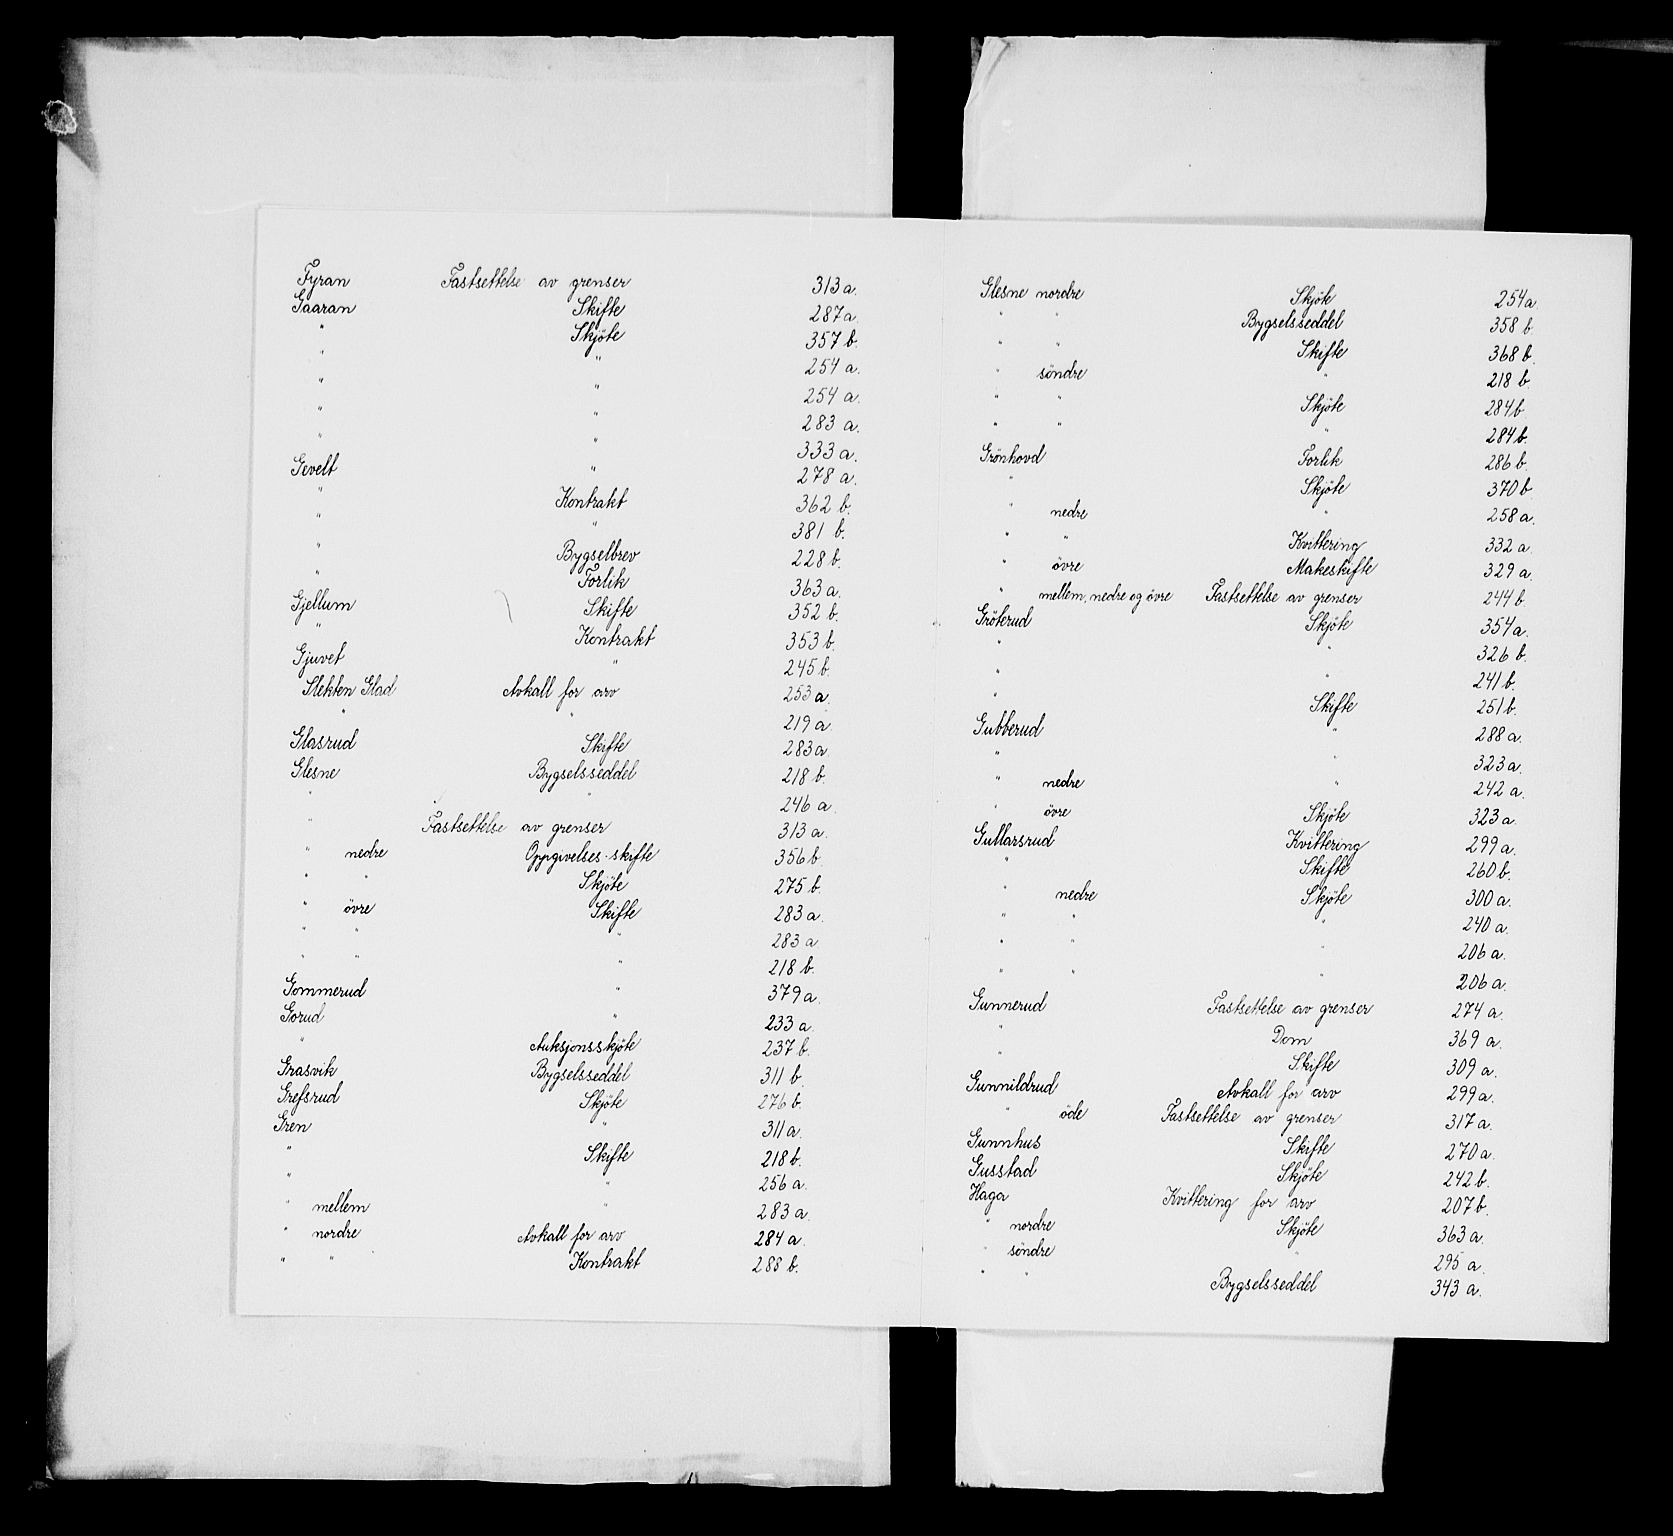 Fyran Fastsettelse av grenser 313 a.
Gaaran Skifte 287 a.
" Skjöte 357 b.
" " 254 a.
" " 254 a.
" " 283 a.
" " 333 a.
Gevelt " 278 a.
" Kontrakt 362 b.
" " 381 b.
" Bygselbrev 228 b.
" Forlik 363 a.
Gjellum Skifte 352 b.
" Kontrakt 353 b.
Gjuvet " 245 b.
Slekten Glad Avkall for arv 253 a.
" " 219 a.
Glasrud Skifte 283 a.
Glesne Bygselsseddel 218 b.
" " 246 a.
" Fastsettelse av grenser 313 a.
" nedre Oppgivelses-skifte 356 b.
" " Skjöte 275 b.
" övre Skifte 283 a.
" " " 283 a.
" " " 218 b.
Gommerud " 379 a.
Gorud " 233 a.
" Auksjonsskjöte 237 b.
Grasvik Bygselsseddel 311 b.
Grefsrud Skjöte 276 b.
Gren " 311 a.
" Skifte 218 b.
" " 256 a.
" mellem " 283 a.
" nordre Avkall for arv 284 a.
" " Kontrakt 288 b.
Glesne nordre Skjöte 254 a.
" " Bygselsseddel 358 b.
" " Skifte 368 b.
" söndre " 218 b.
" " Skjöte 284 b.
" " " 284 b.
Grönhovd Forlik 286 b.
" Skjöte 370 b.
" nedre " 258 a.
" " Kvittering 332 a.
" övre Makeskifte 329 a.
" mellem, nedre og övre Fastsettelse av grenser 244 b.
Gröterud Skjöte 354 a.
" " 326 b.
" " 241 b.
" Skifte 251 b.
Gubberud " 288 a.
" " 323 a.
" nedre " 242 a.
" övre Skjöte 323 a.
Guttarsrud Kvittering 299 a.
" Skifte 260 b.
" nedre Skjöte 300 a.
" " " 240 a.
" " " 206 a.
" " " 206 a.
Gunnerud Fastsettelse av grenser 274 a.
" Dom 369 a.
" Skifte 309 a.
Gunnildrud Avkall for arv 299 a.
" öde Fastsettelse av grenser 317 a.
Gunnhus Skifte 270 a.
Gusstad Skjöte 242 b.
Haga Kvittering for arv 207 b.
" nordre Skjöte 363 a.
" söndre " 295 a.
" " Bygselsseddel 343 a.